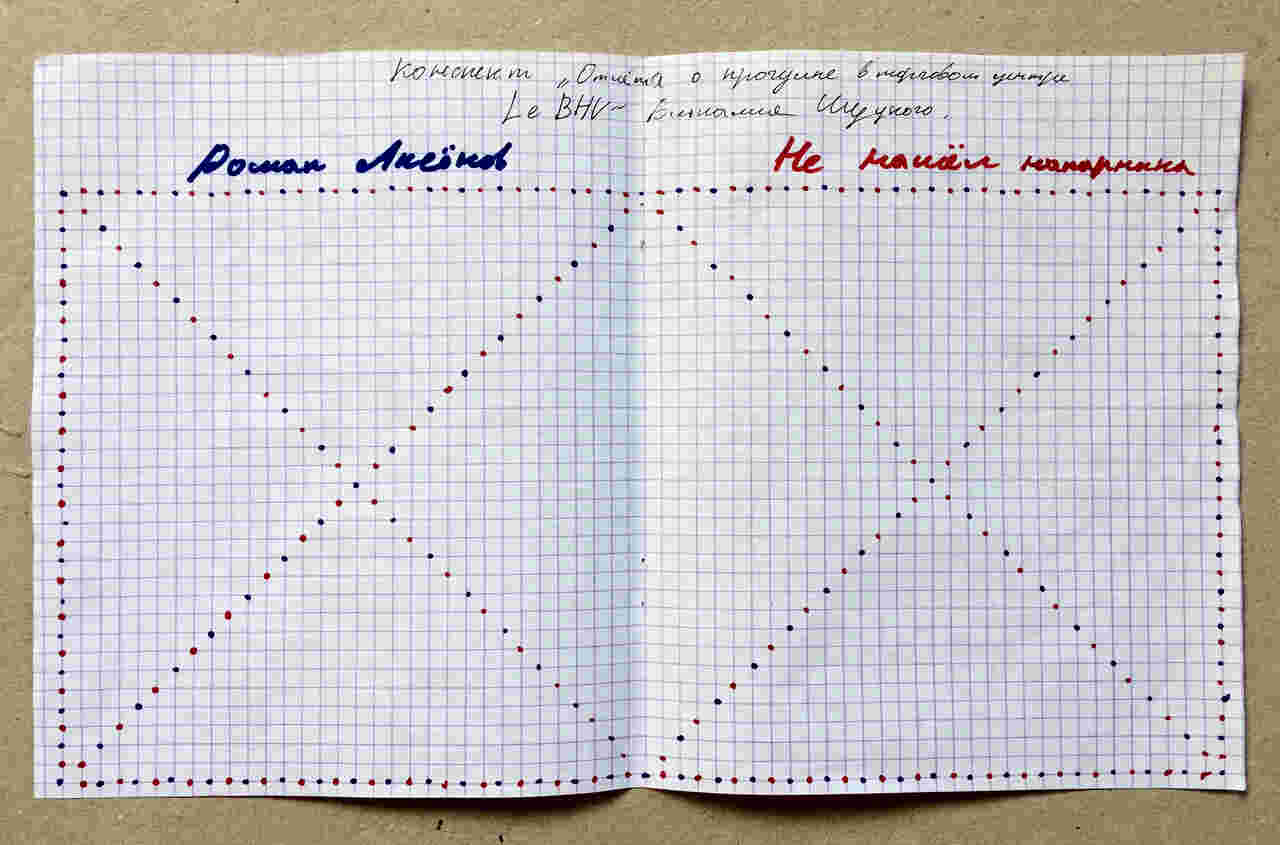 Конспект „Отчёта о прогулке в торговом центре
Le BHV" Виталия Шуцкого.
Роман Аксёнов
Не нашёл напарника